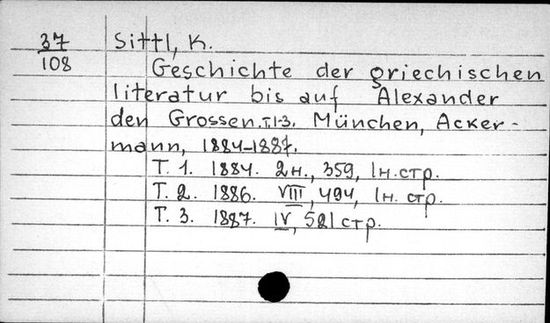 37
108
Sittl, K.
Geschichte der griechischen
literatur bis auf Alexander
den Grossen. T.1-3. München, Acker-
mann, 1884-1887.
T. 1. 1884. 2н., 359, 1н. стр.
T. 2. 1886. VIII, 494, 1н. стр.
T. 3. 1887. IV, 521 стр.